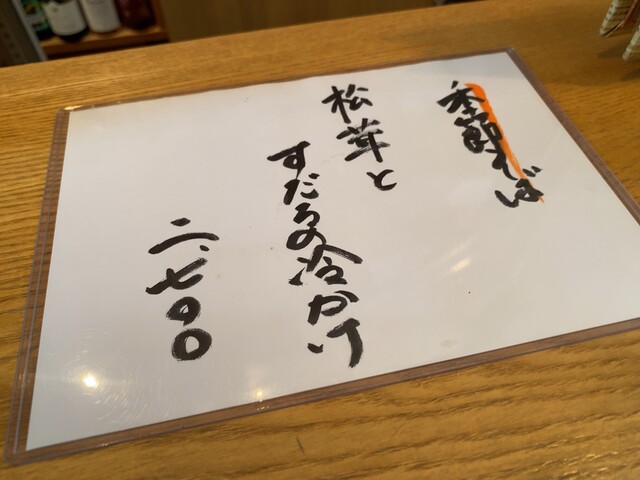 季節そば
松茸と
すだちの冷かけ
二、七〇〇